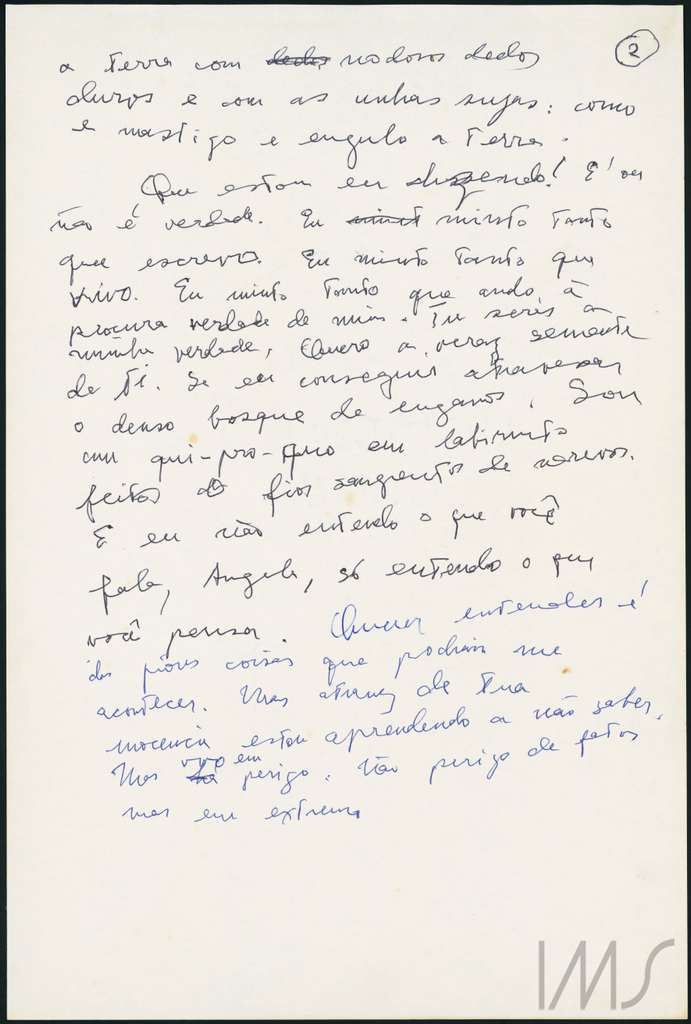 2
a terra com dedos nodosos dedos
duros e com as unhas sujas: como
e mastigo e engulo a terra.
Que estou eu dizendo! É ou
não é verdade. Eu mint minto tanto
que escrevo. Eu minto tanto que
vivo. Eu minto tanto que ando à
procura verdade de mim. Tu serás a
minha verdade. Quero a veraz semente
de ti. Se eu conseguir atravessar
o denso bosque de enganos. Sou
um qui-pro-quo em labirinto
feitos de fios sangrentos de nervos.
E eu não entendo o que você
fala, Angela, só entendo o que
você pensa. Querer entender é
das piores coisas que podiam me
acontecer. Mas atravez de tua
inocencia estou aprendendo a não saber.
Mas vivo em perigo. Não perigo de fatos
mas em extrema
IMS